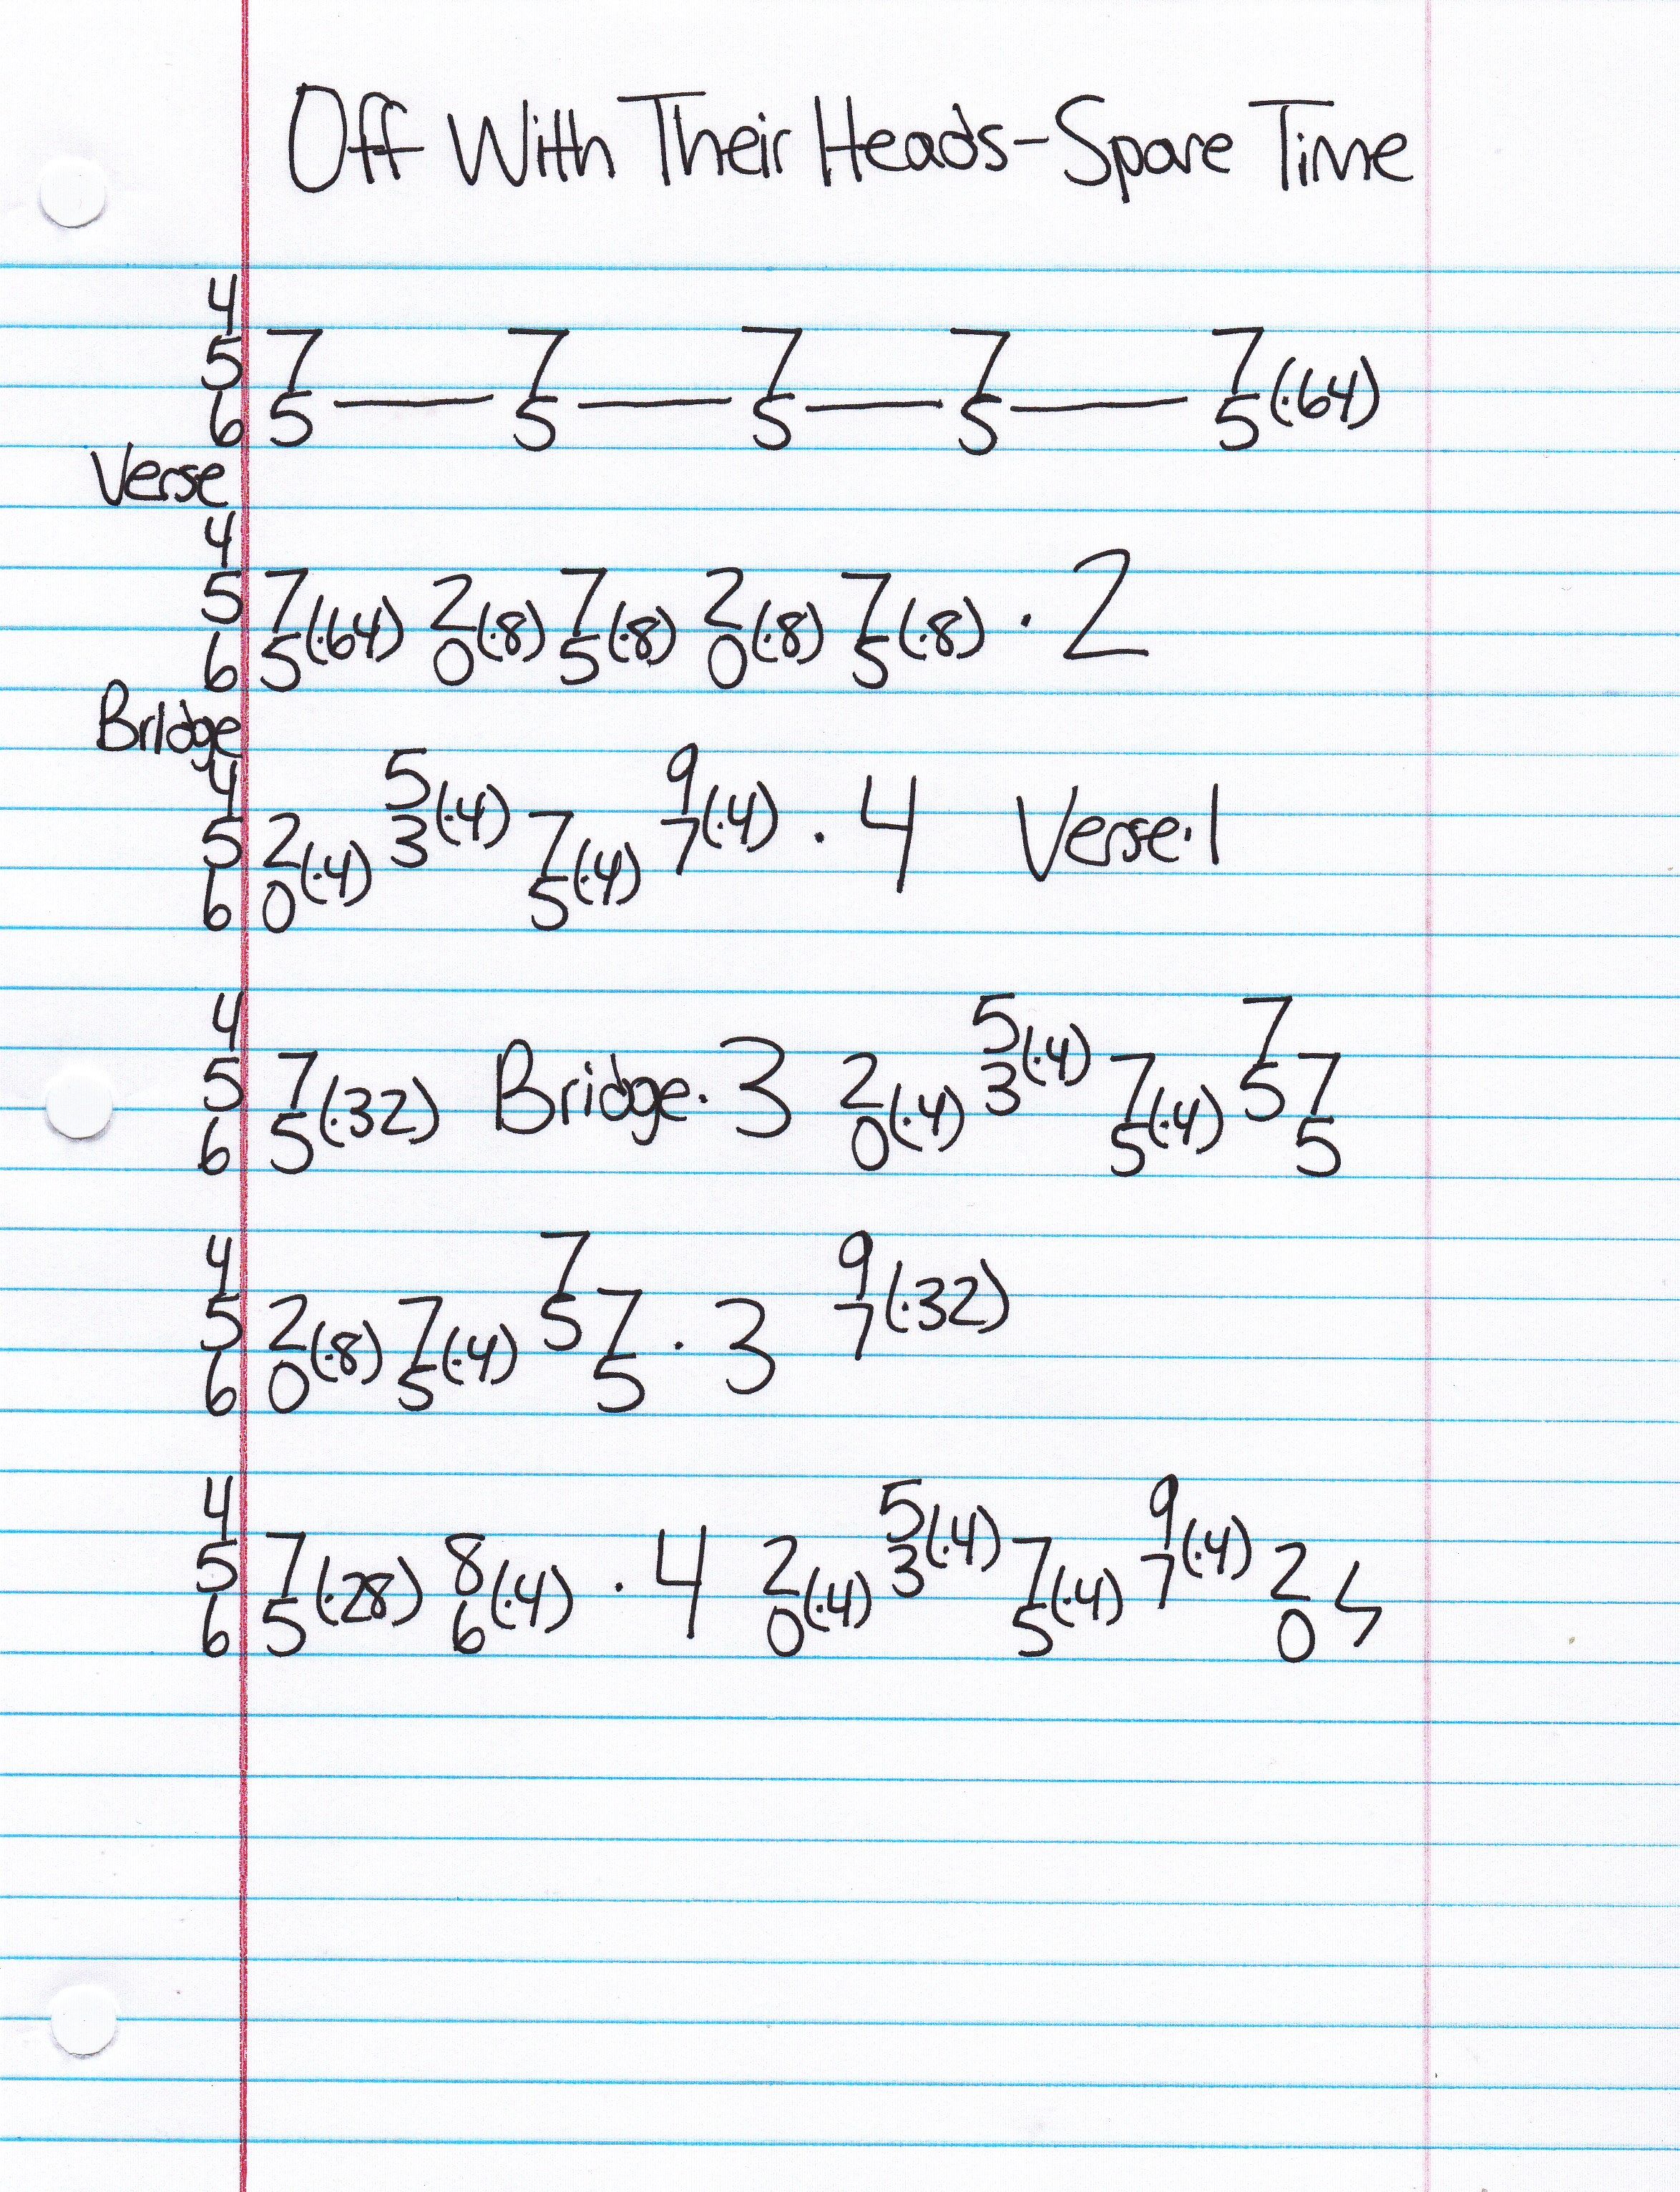 Off With Their Heads-Spare Time
4
5 7 7 7 7 7
6 5 — 5 — 5 — 5 — 5 (·64)
Verse
4
5 7 2 7 2 7
6 5(·64) 0(·8) 5(·8) 0(·8) 5(·8) · 2
Bridge
4 5 9
5 2 3(·4) 7 7(·4) · 4 Verse·1
6 0(·4) 5(·4)
4 5 7
5 7 Bridge·3 2 3(·4) 7 5 7
6 5(·32) 0(·4) 5(·4) 5
4 7 9
5 2 7 5 7 · 3 7(·32)
6 0(·8) 5(·4) 5
4 5 9
5 7 8 · 4 2 3(·4) 7 7(·4) 2
6 5(·28) 6(·4) 0(·4) 5(·4) 0